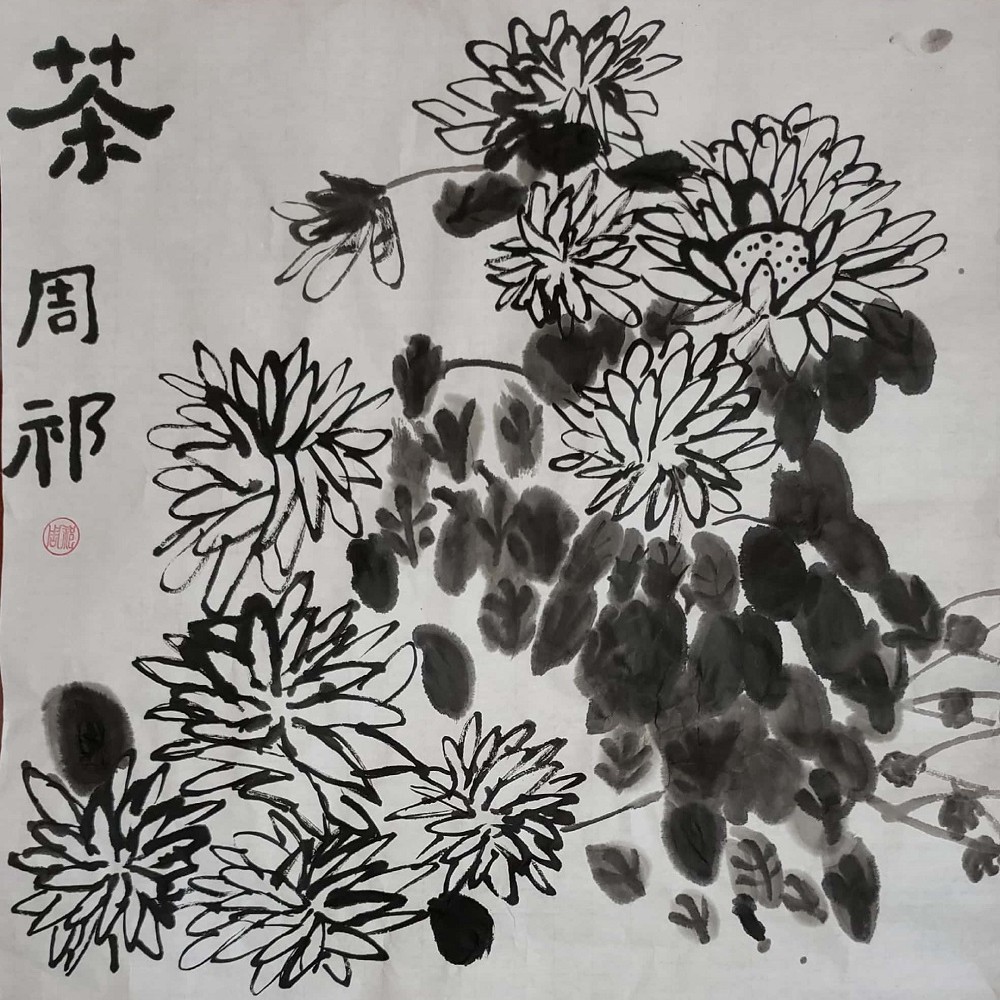 茶
周
祁